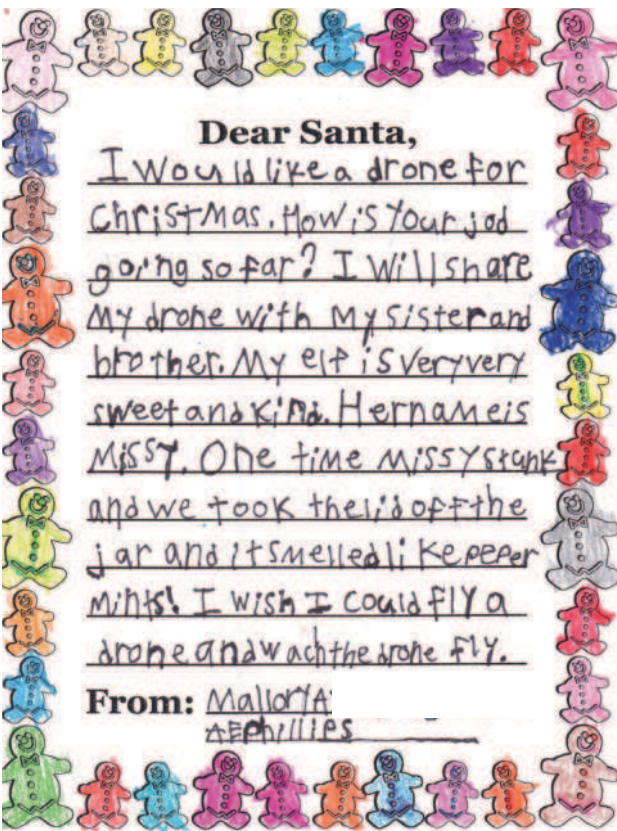 Dear Santa,
I would like a drone for
Christmas. How is your jod
going so far? I will share
my drone with my sister and
brother. My elf is very very
sweet and kind. Her name is
Missy. One time missy stank
and we took the lid off the
jar and it smelled like peper
mints! I wish I could fly a
drone and wach the drone fly.
From: Mallory A
AEPhillips